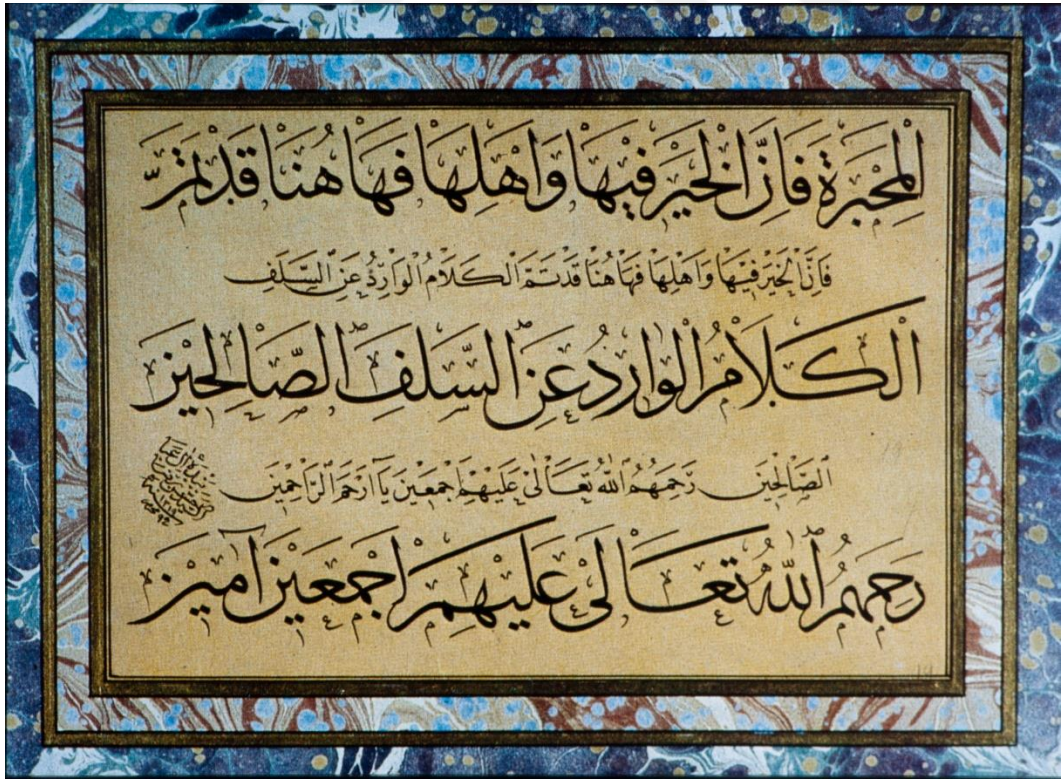 الْمِحْبَرَةِ فَاِنَّ الْخَيْرَ فِيْهَا وَاَهْلِهَا فَهَا هُنَا قَدْ تَمَّ
فَاِنَّ الْخَيْرَ فِيْهَا وَاَهْلِهَا فَهَا هُنَا قَدْ تَمَّ الْكَلَامُ الْوَارِدُ عَنِ السَّلَفِ
الْكَلَامُ الْوَارِدُ عَنِ السَّلَفِ الصَّالِحِيْنَ
الصَّالِحِيْنَ رَحِمَهُمُ اللّٰهُ تَعَالٰى عَلَيْهِمْ اَجْمَعِيْنَ يَا اَرْحَمَ الرَّاحِمِيْنَ
رَحِمَهُمُ اللّٰهُ تَعَالٰى عَلَيْهِمْ اَجْمَعِيْنَ آمِيْنَ